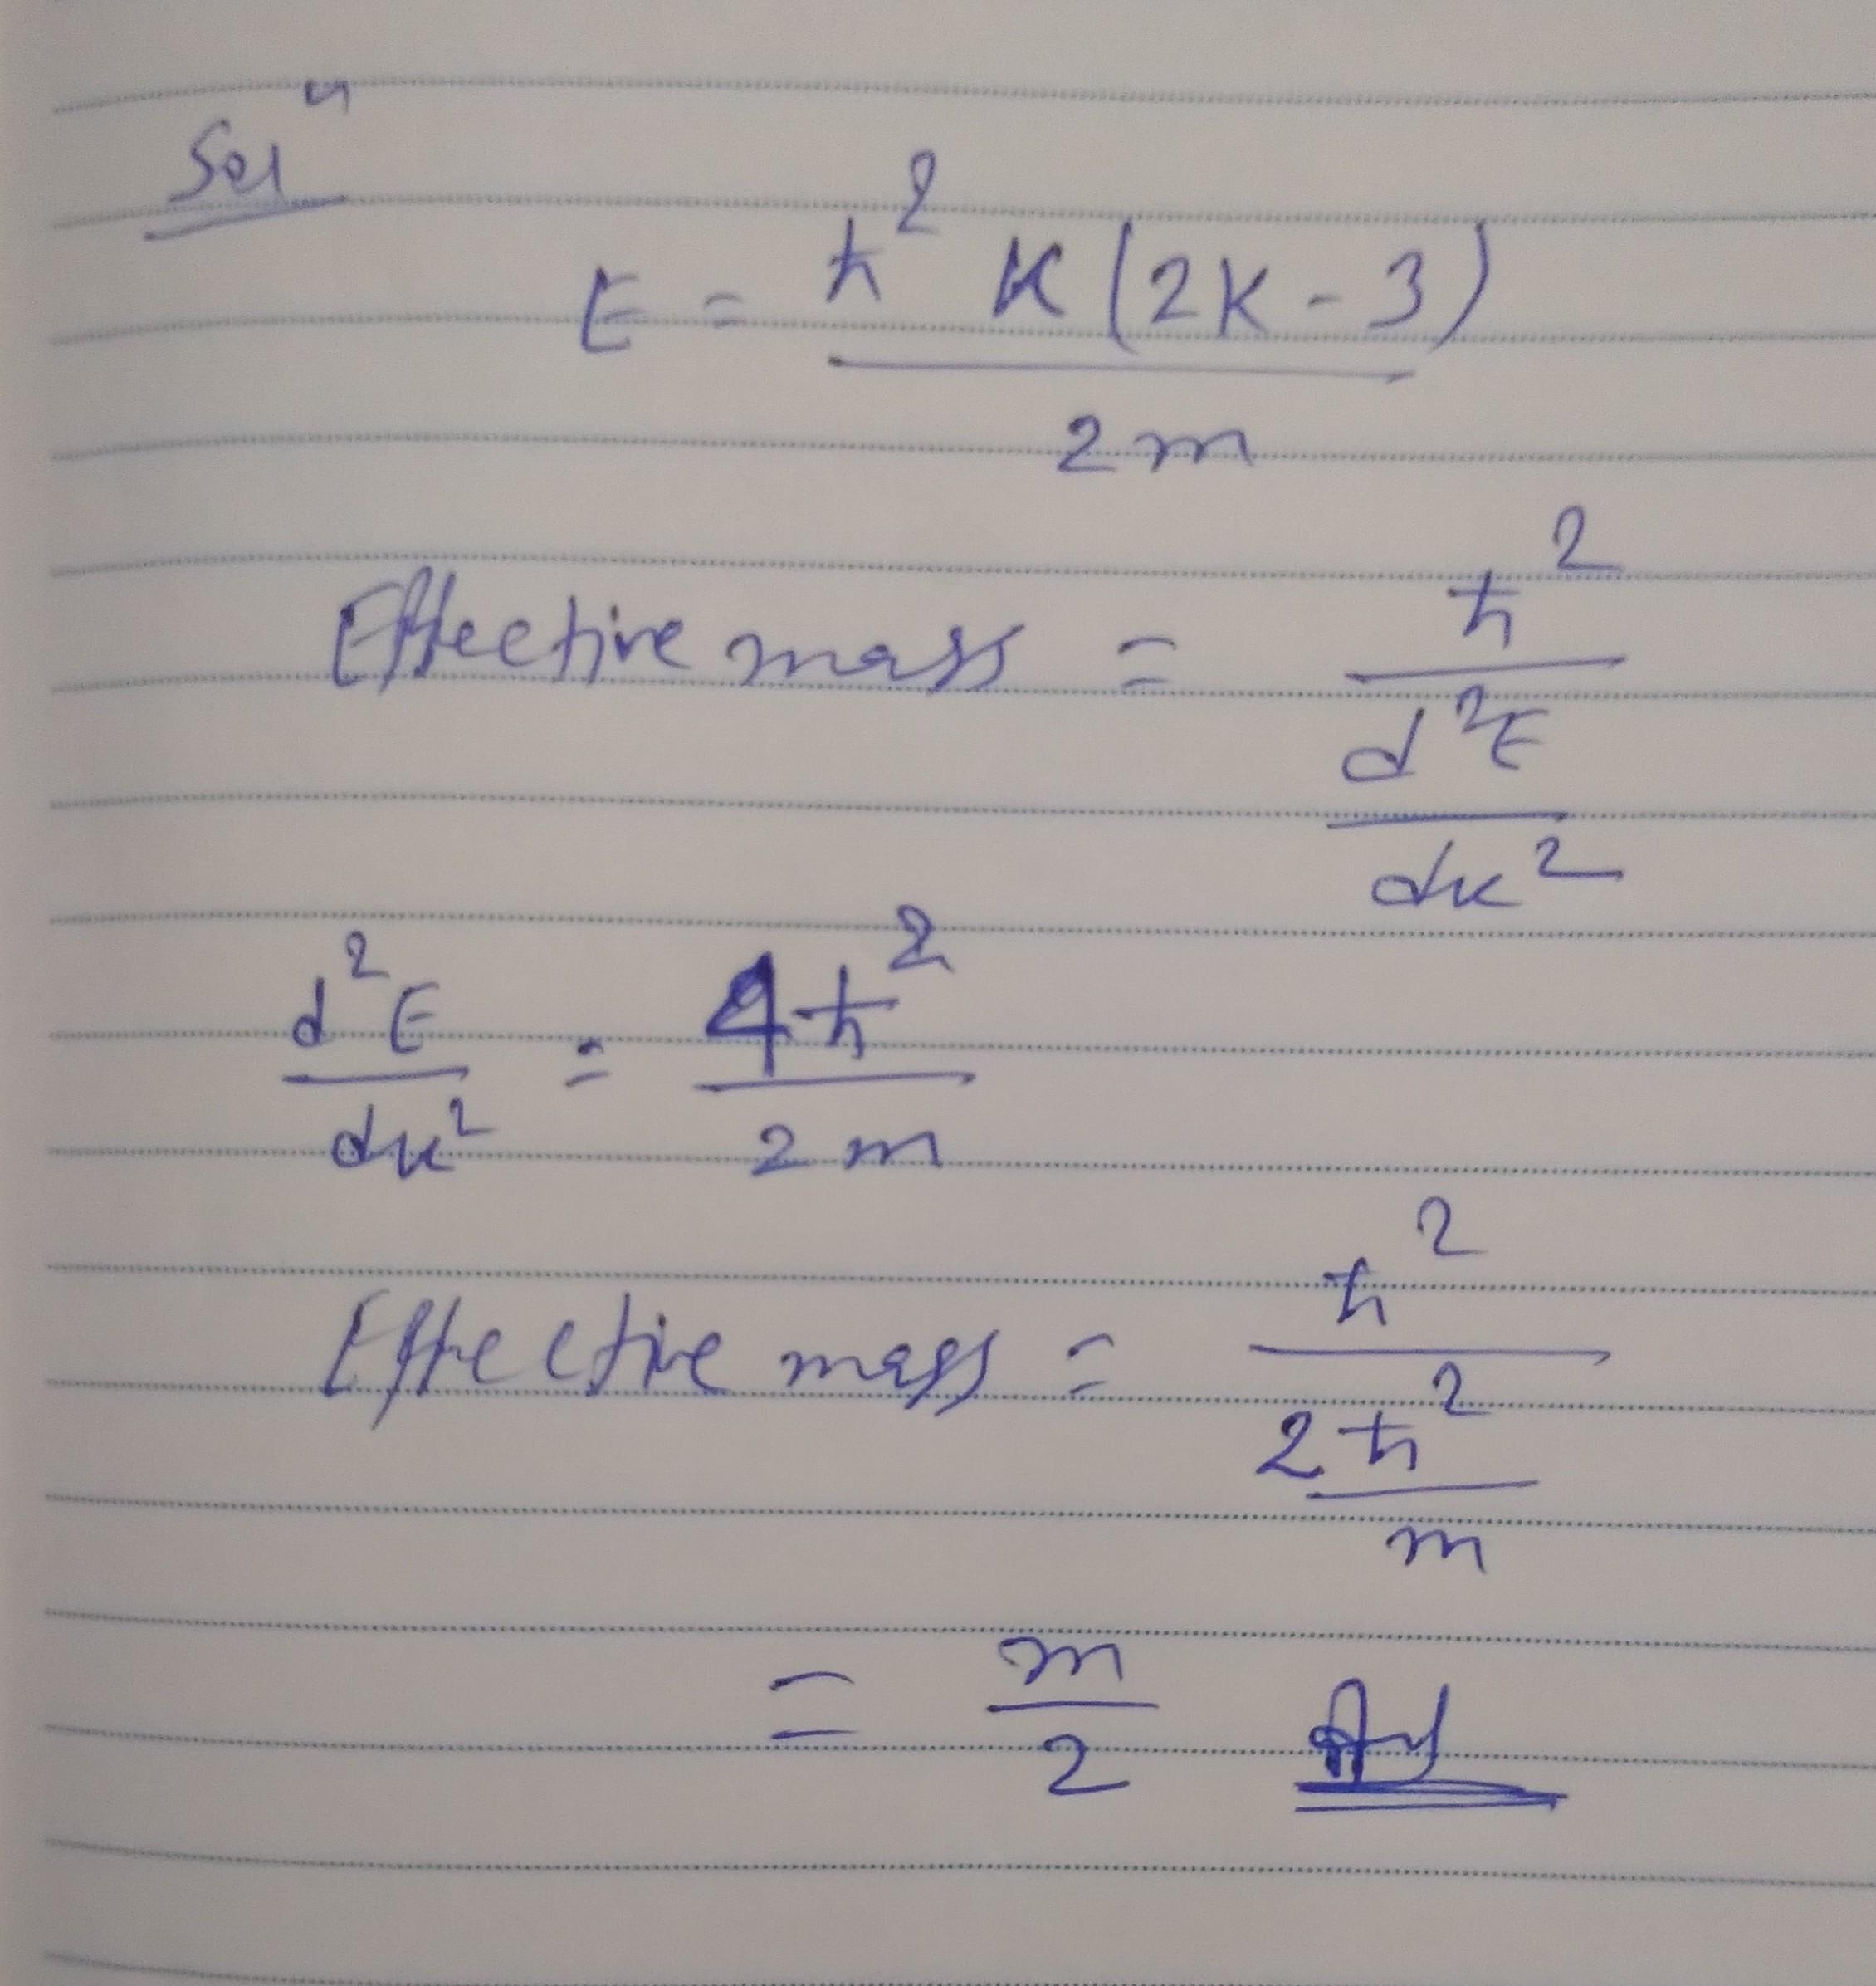 Solⁿ
E = ħ² K(2K - 3) / 2m
Effective mass = ħ² / (d²E / dk²)
d²E / dk² = 4ħ² / 2m
Effective mass = ħ² / (2ħ² / m)
= m / 2 Ans